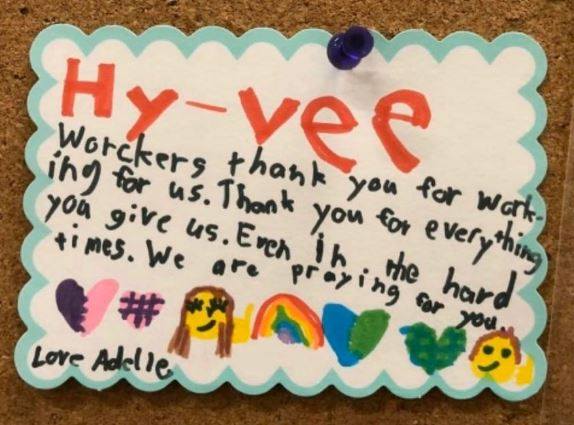 Hy-vee
Worckers thank you for work-
ing for us. Thank you for everything
you give us. Even in the hard
times. We are praying for you.
#
Love Adelle